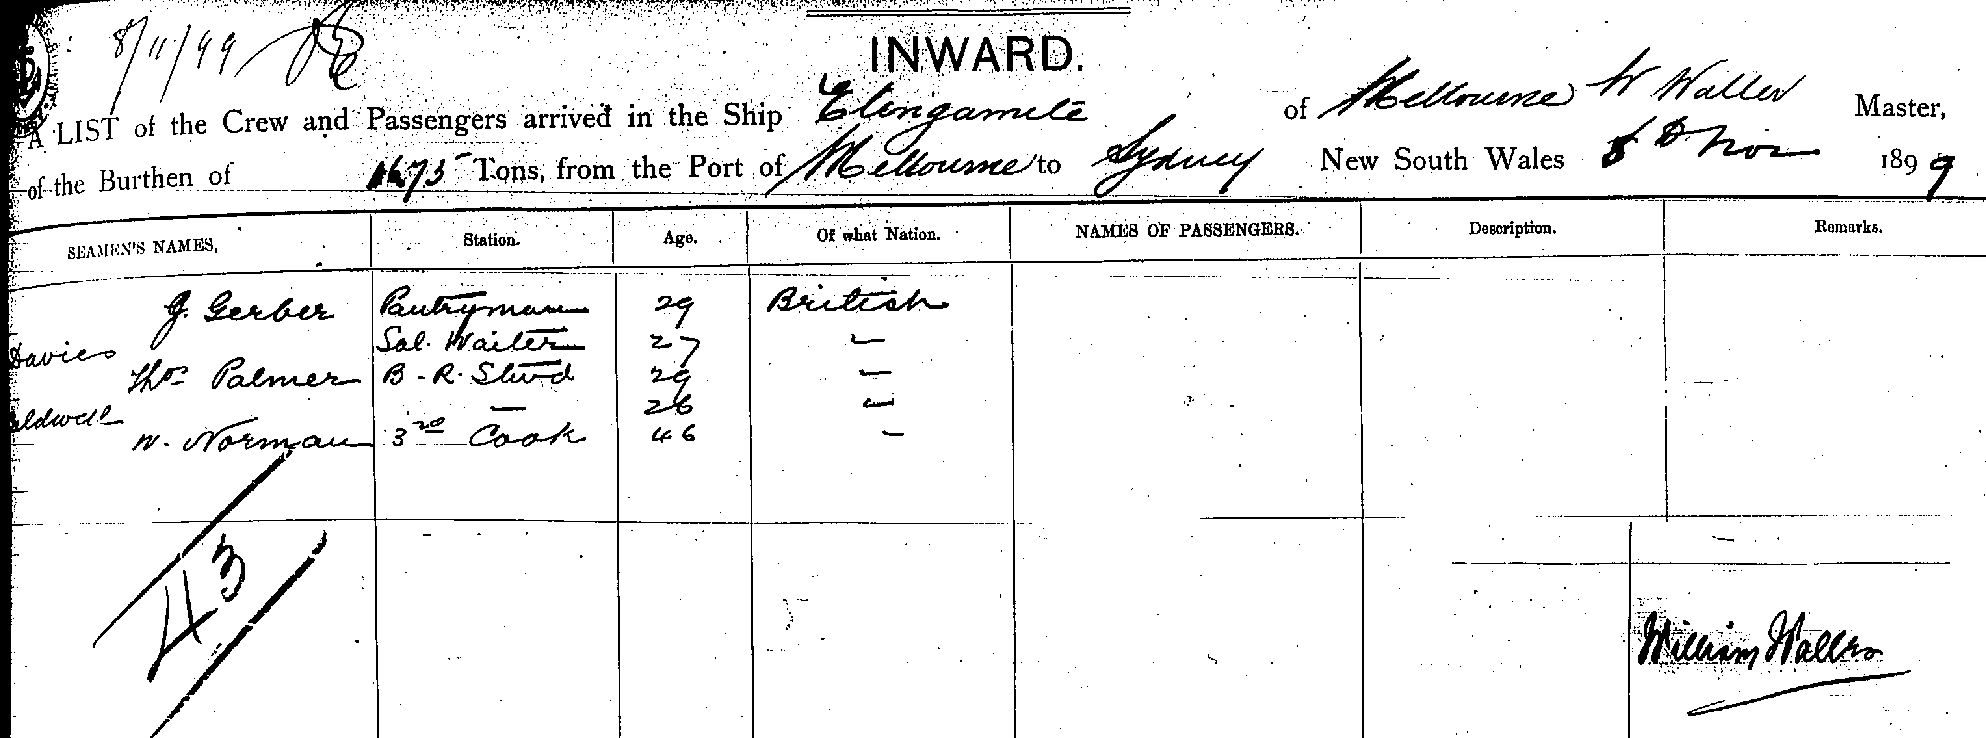 8/11/99
INWARD.
A LIST of the Crew and Passengers arrived in the Ship Elingamite of Melbourne W Waller Master,
of the Burthen of 1675 Tons, from the Port of Melbourne to Sydney New South Wales 8th Nov 1899
SEAMEN'S NAMES, Station. Age. Of what Nation. NAMES OF PASSENGERS. Description. Remarks.
J. Gerber Pantryman 29 British
Davies Sal. Waiter 27 "
Thos Palmer B. R. Stwd 29 "
aldwell " 26 "
W. Norman 3rd Cook 46 "
43
William Waller